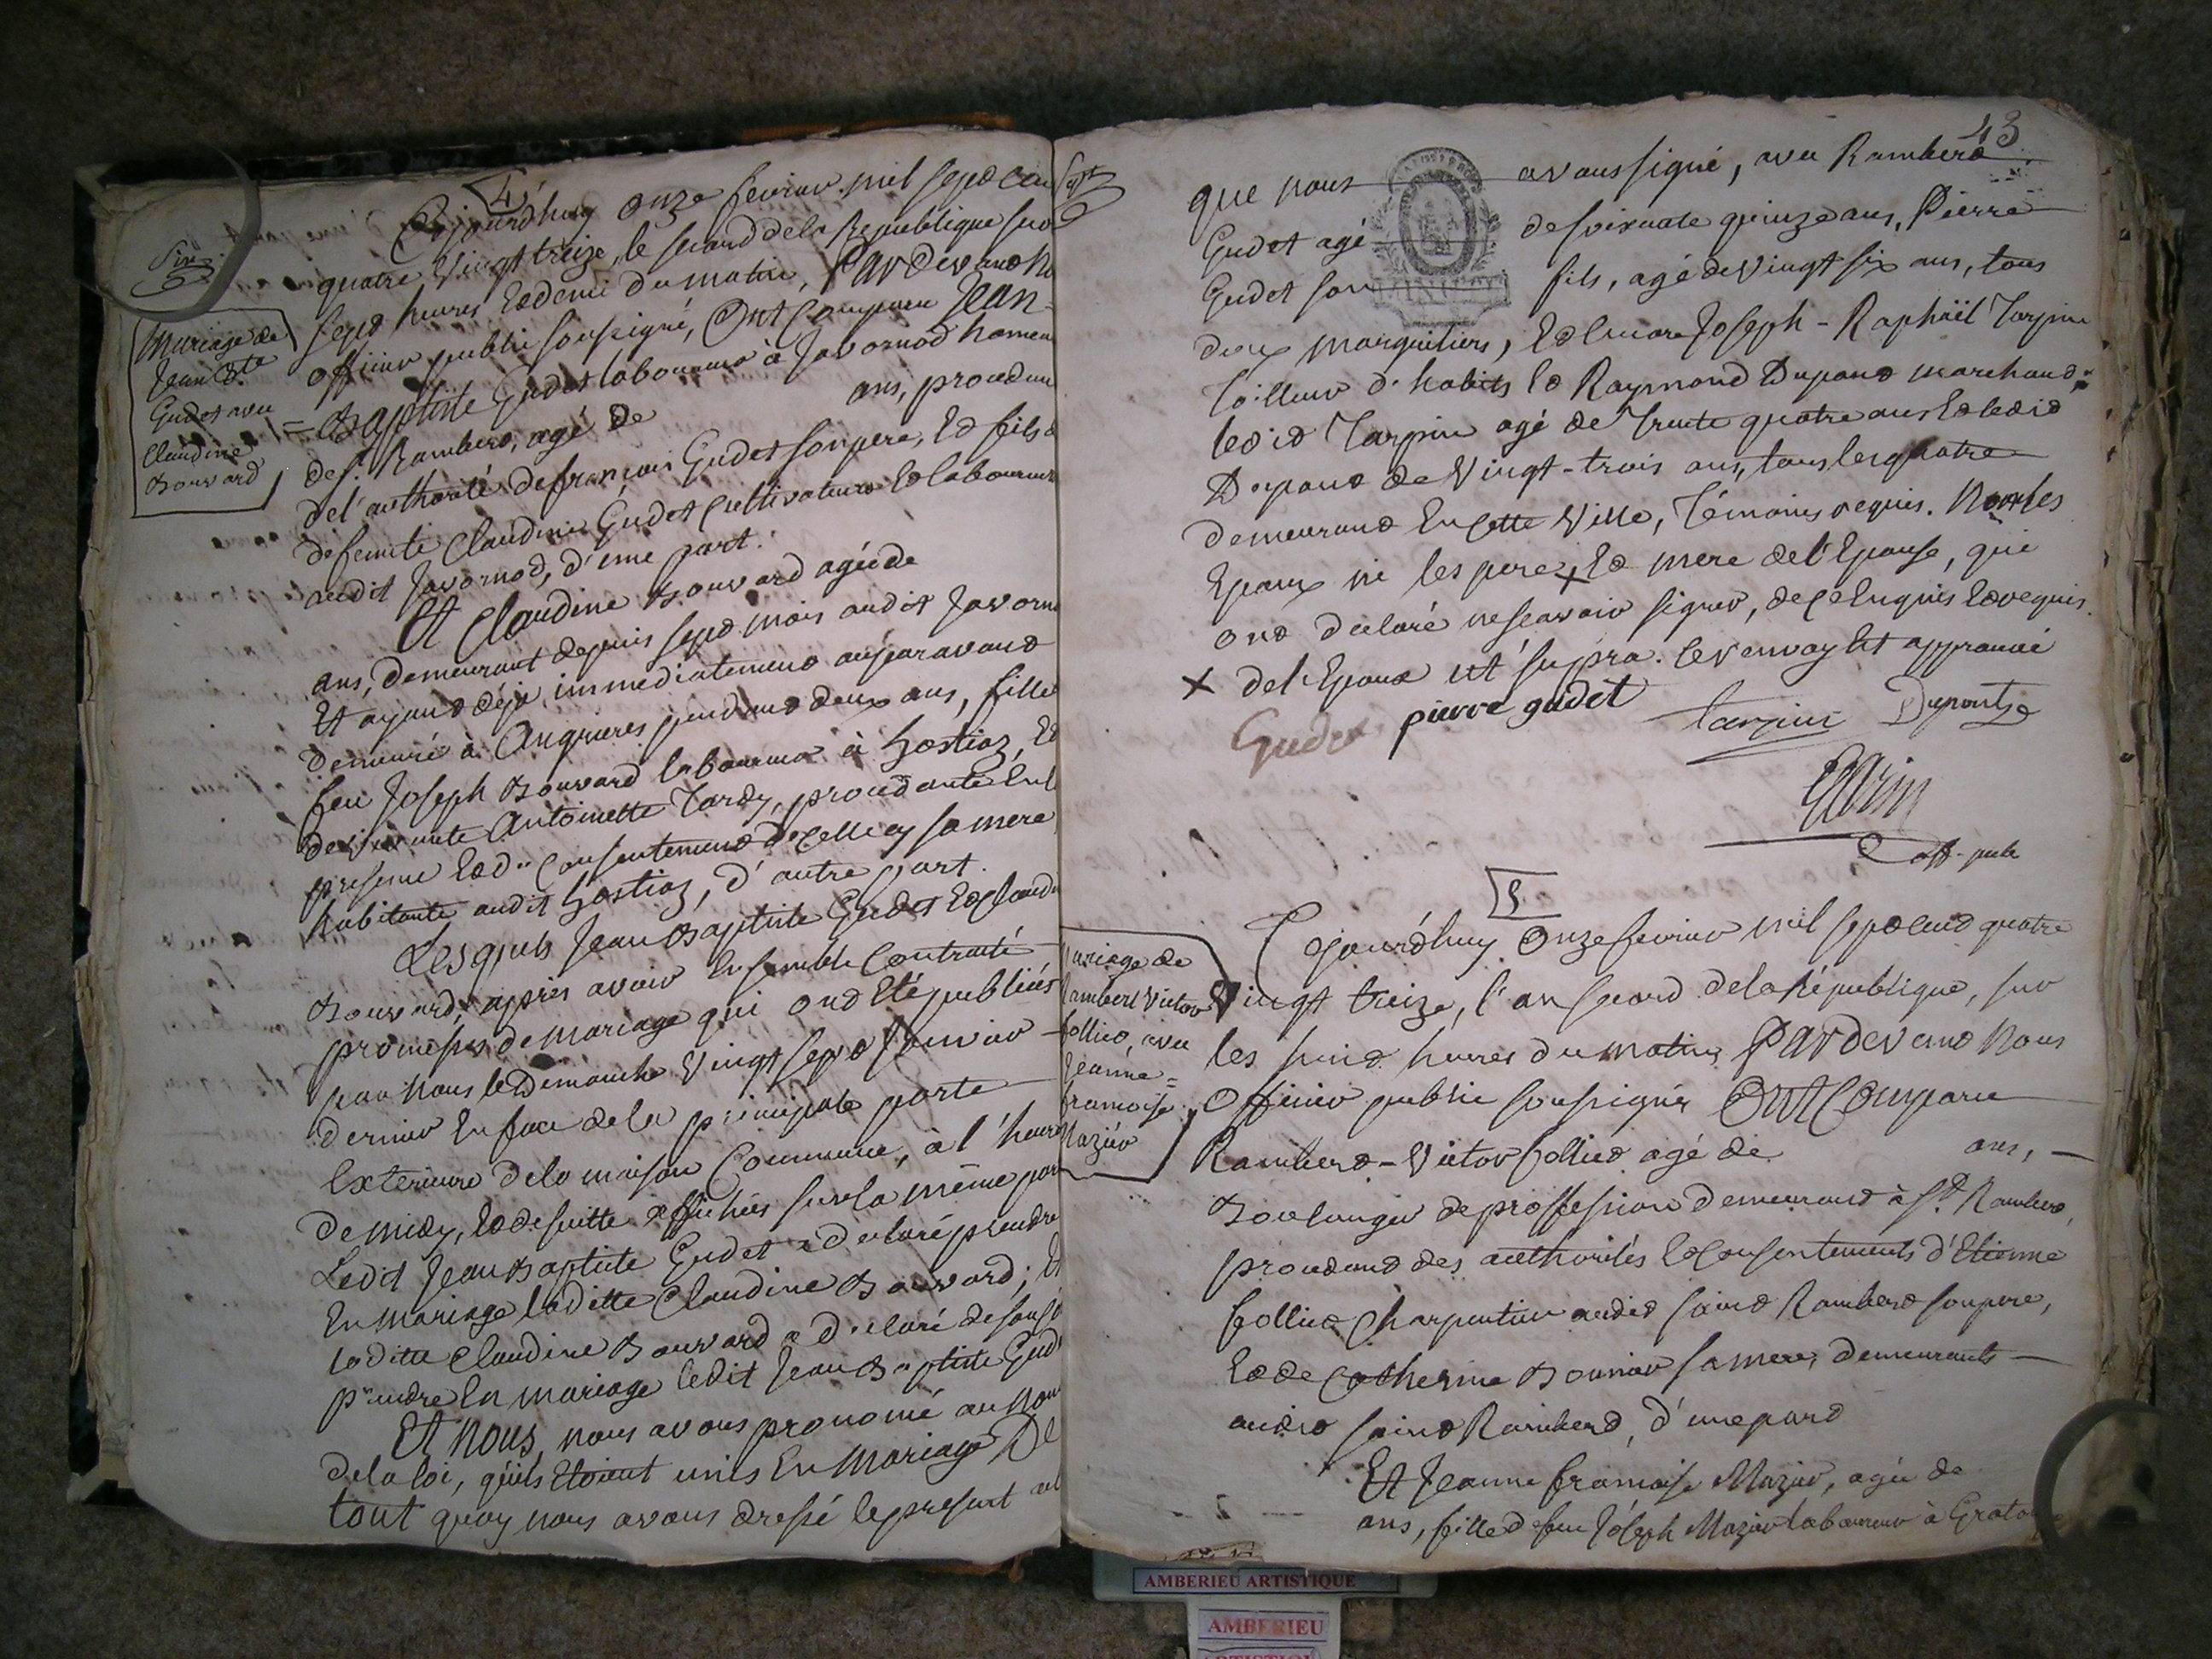 4
Cejourdhuy onze fevrier mil sept cen
quatre Vingt treize, le second de la Republique sur
sept heures Et demi du matin, Pardevant No
officier public soussigné, Ont Comparu Jean =
= Baptiste Gudet laboureur à Javornod hameau
de st. Rambert, agé de ans, procedant
de l'authorité de françois Gudet son pere, Et fils
de feuüe Claudine Gudet Cultivateurs Et laboureurs
audit Javornod, d'une part.
Et Claudine Bouvard agée de
ans, demeurant depuis sept mois audit Javorno
Et ayant déja immediatement auparavant
demeuré à Angrieres pendant deux ans, fille
feu Joseph Bouvard laboureur à hostiaz, Et
de vivante Antoinette Tardy, procedante En l
presence Et du Consentement de celle cy sa mere
habitante audit hostiaz, d'autre part.
Lesquels Jean Baptiste Gudet Et Claudi
Bouvard, après avoir Ensemble Contracté
promesses de mariage qui ont Eté publiées
par Nous le Dimanche Vingt sept Janvier
dernier En face de la principale porte
Exterieure de la maison Commune, à l'heure
de midy, Et de suitte affichées sur la même por
Ledit Jean Baptiste Gudet a declaré prendre
En mariage laditte Claudine Bouvard; Et
laditte Claudine Bouvard a declaré de son cô
prendre En mariage ledit Jean Baptiste Gud
Et Nous, nous avons prononcé au nom
de la loi, qu'ils Etoient unis En Mariage De
tout quoy nous avons dressé le present
Mariage de
Jean Bte
Gudet avec
Claudine
Bouvard
43
que nous avons signé, avec Rambert
Gudet agé de soixante quinze ans, Pierre
Gudet son fils, agé de Vingt six ans, tous
deux marguilliers, Et Encore Joseph - Raphaël Tarpin
Tailleur d'habits Et Raymond Dupont marchand
ledit Tarpin agé de Trente quatre ans Et ledit
Dupont de Vingt-trois ans, tous les quatre
demeurant En cette Ville, Témoins requis. Non les
Epoux ni les pere x, Et mere de l'Epouse, qui
ont declaré ne scavoir signer, de ce Enquis Et requis.
x de l'Epoux ut supra. le renvoy Est approuvé
Gudet pierre gudet Tarpin Dupont
off. pub
5
Cejourdhuy Onze fevrier mil sept cent quatre
Vingt treize, l'an second de la République, sur
les huit heures du matin, Pardevant Nous
Officier public soussigné Ont Comparu
Rambert - Victor follied agé de ans,
Boulanger de profession demeurant à St. Rambert,
procedant des authorités Et Consentements d'Etienne
follied Charpentier audit saint Rambert son pere,
Et de Catherine Bonnier sa mere, demeurants
audit saint Rambert, d'une part
Et Jeanne francoise Mazier, agée de
ans, fille de feu Joseph Mazier laboureur à
Mariage de
Rambert Victor
follied, avec
Jeanne =
francoise
Mazier
AMBERIEU ARTISTIQUE
AMBERIEU
ARTISTIQUE